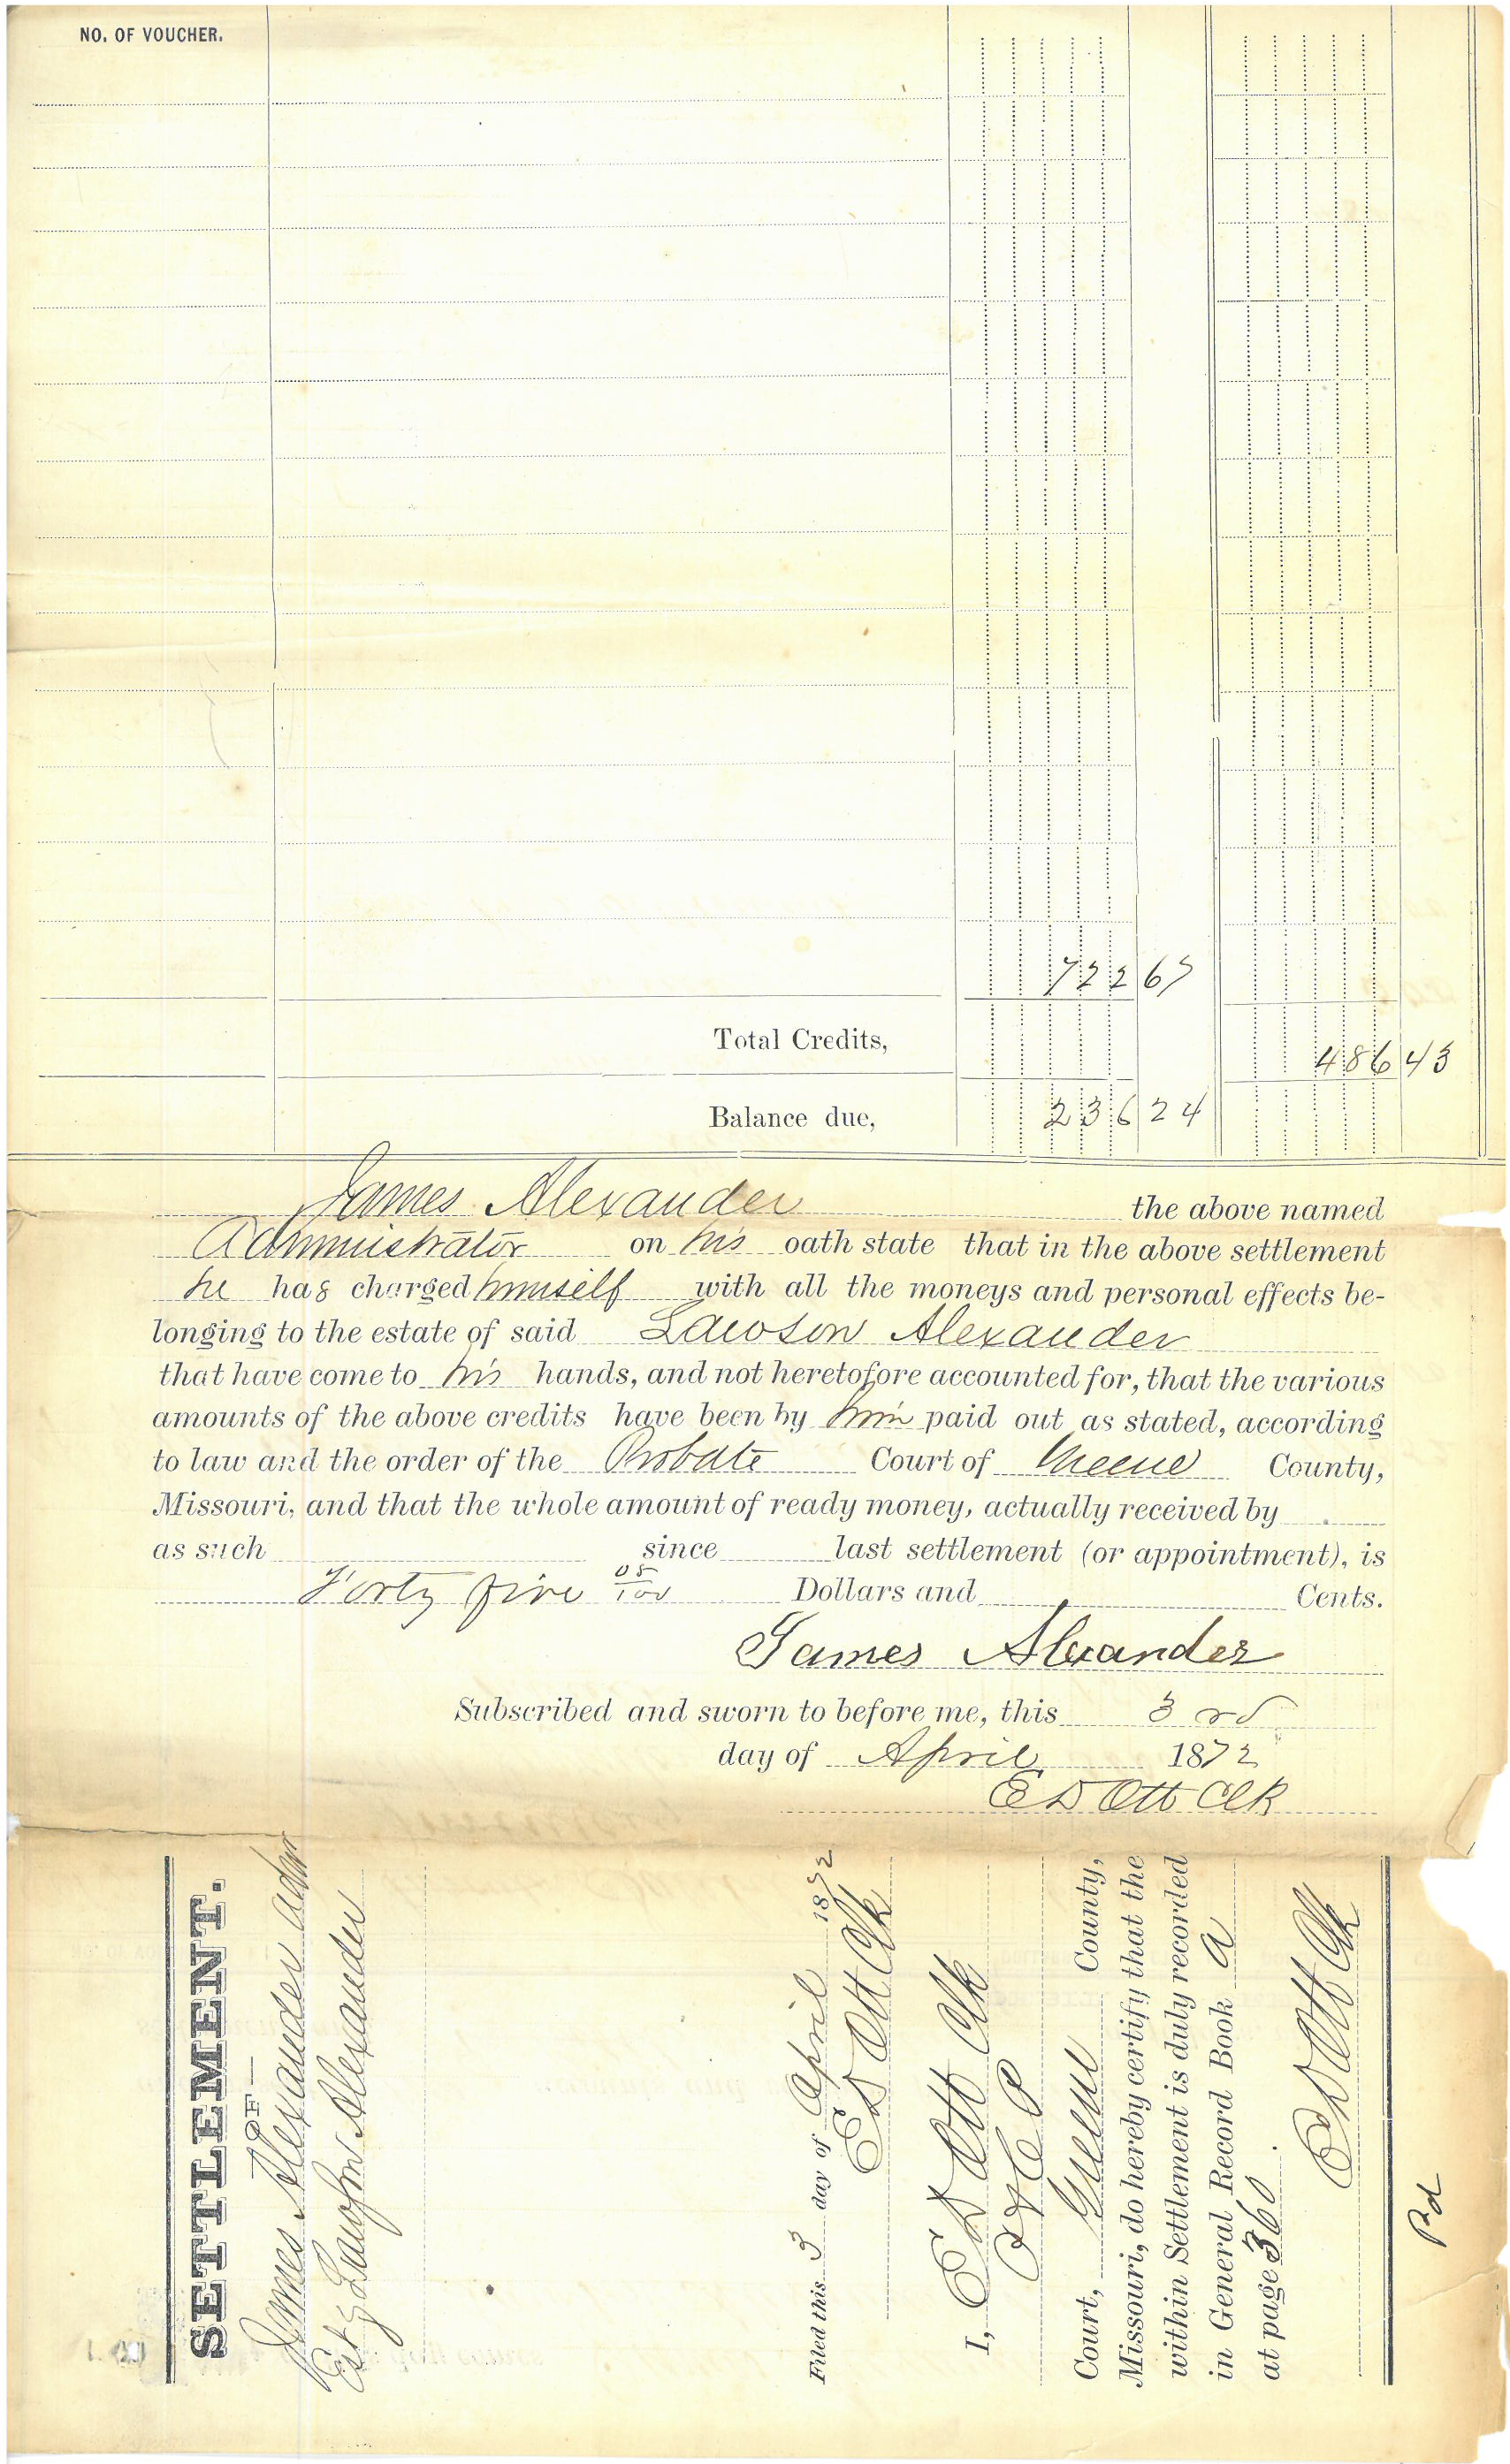 NO. OF VOUCHER.
722 67
Total Credits,
486 43
Balance due, 236 24
James Alexander the above named
Administrator on his oath state that in the above settlement
he has charged himself with all the moneys and personal effects be-
longing to the estate of said Lawson Alexander
that have come to his hands, and not heretofore accounted for, that the various
amounts of the above credits have been by him paid out as stated, according
to law and the order of the Probate Court of Greene County,
Missouri, and that the whole amount of ready money, actually received by
as such since last settlement (or appointment), is
Forty five 05/100 Dollars and Cents.
James Alexander
Subscribed and sworn to before me, this 3rd
day of April 1872
E D Ott Clk
SETTLEMENT.
—OF—
James Alexander Admr
Est of Lawson Alexander
Filed this 3 day of April 1872
E D Ott Clk
I, E D Ott Clk
Court, Greene County,
Missouri, do hereby certify that the
within Settlement is duly recorded
in General Record Book A
at page 360.
E D Ott Clk
Pd